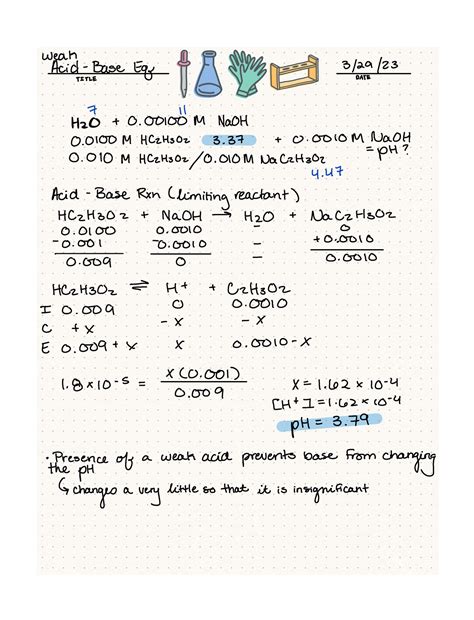 Weak
Acid - Base Eq
TITLE
3/29/23
DATE
7 11
H2O + 0.00100 M NaOH
0.0100 M HC2H3O2 3.37 + 0.0010 M NaOH
= pH ?
0.010 M HC2H3O2 / 0.010 M NaC2H3O2
4.47
Acid - Base Rxn (limiting reactant)
HC2H3O2 + NaOH → H2O + NaC2H3O2
0.0100 0.0010 - 0
-0.001 -0.0010 - +0.0010
0.009 0 - 0.0010
HC2H3O2 ⇌ H+ + C2H3O2
I 0.009 0 0.0010
C +x -x -x
E 0.009+x x 0.0010-x
1.8x10-5 = x(0.001)
0.009
x = 1.62 x 10-4
[H+] = 1.62 x 10-4
pH = 3.79
• Presence of a weak acid prevents base from changing
the pH
↳ changes a very little so that it is insignificant